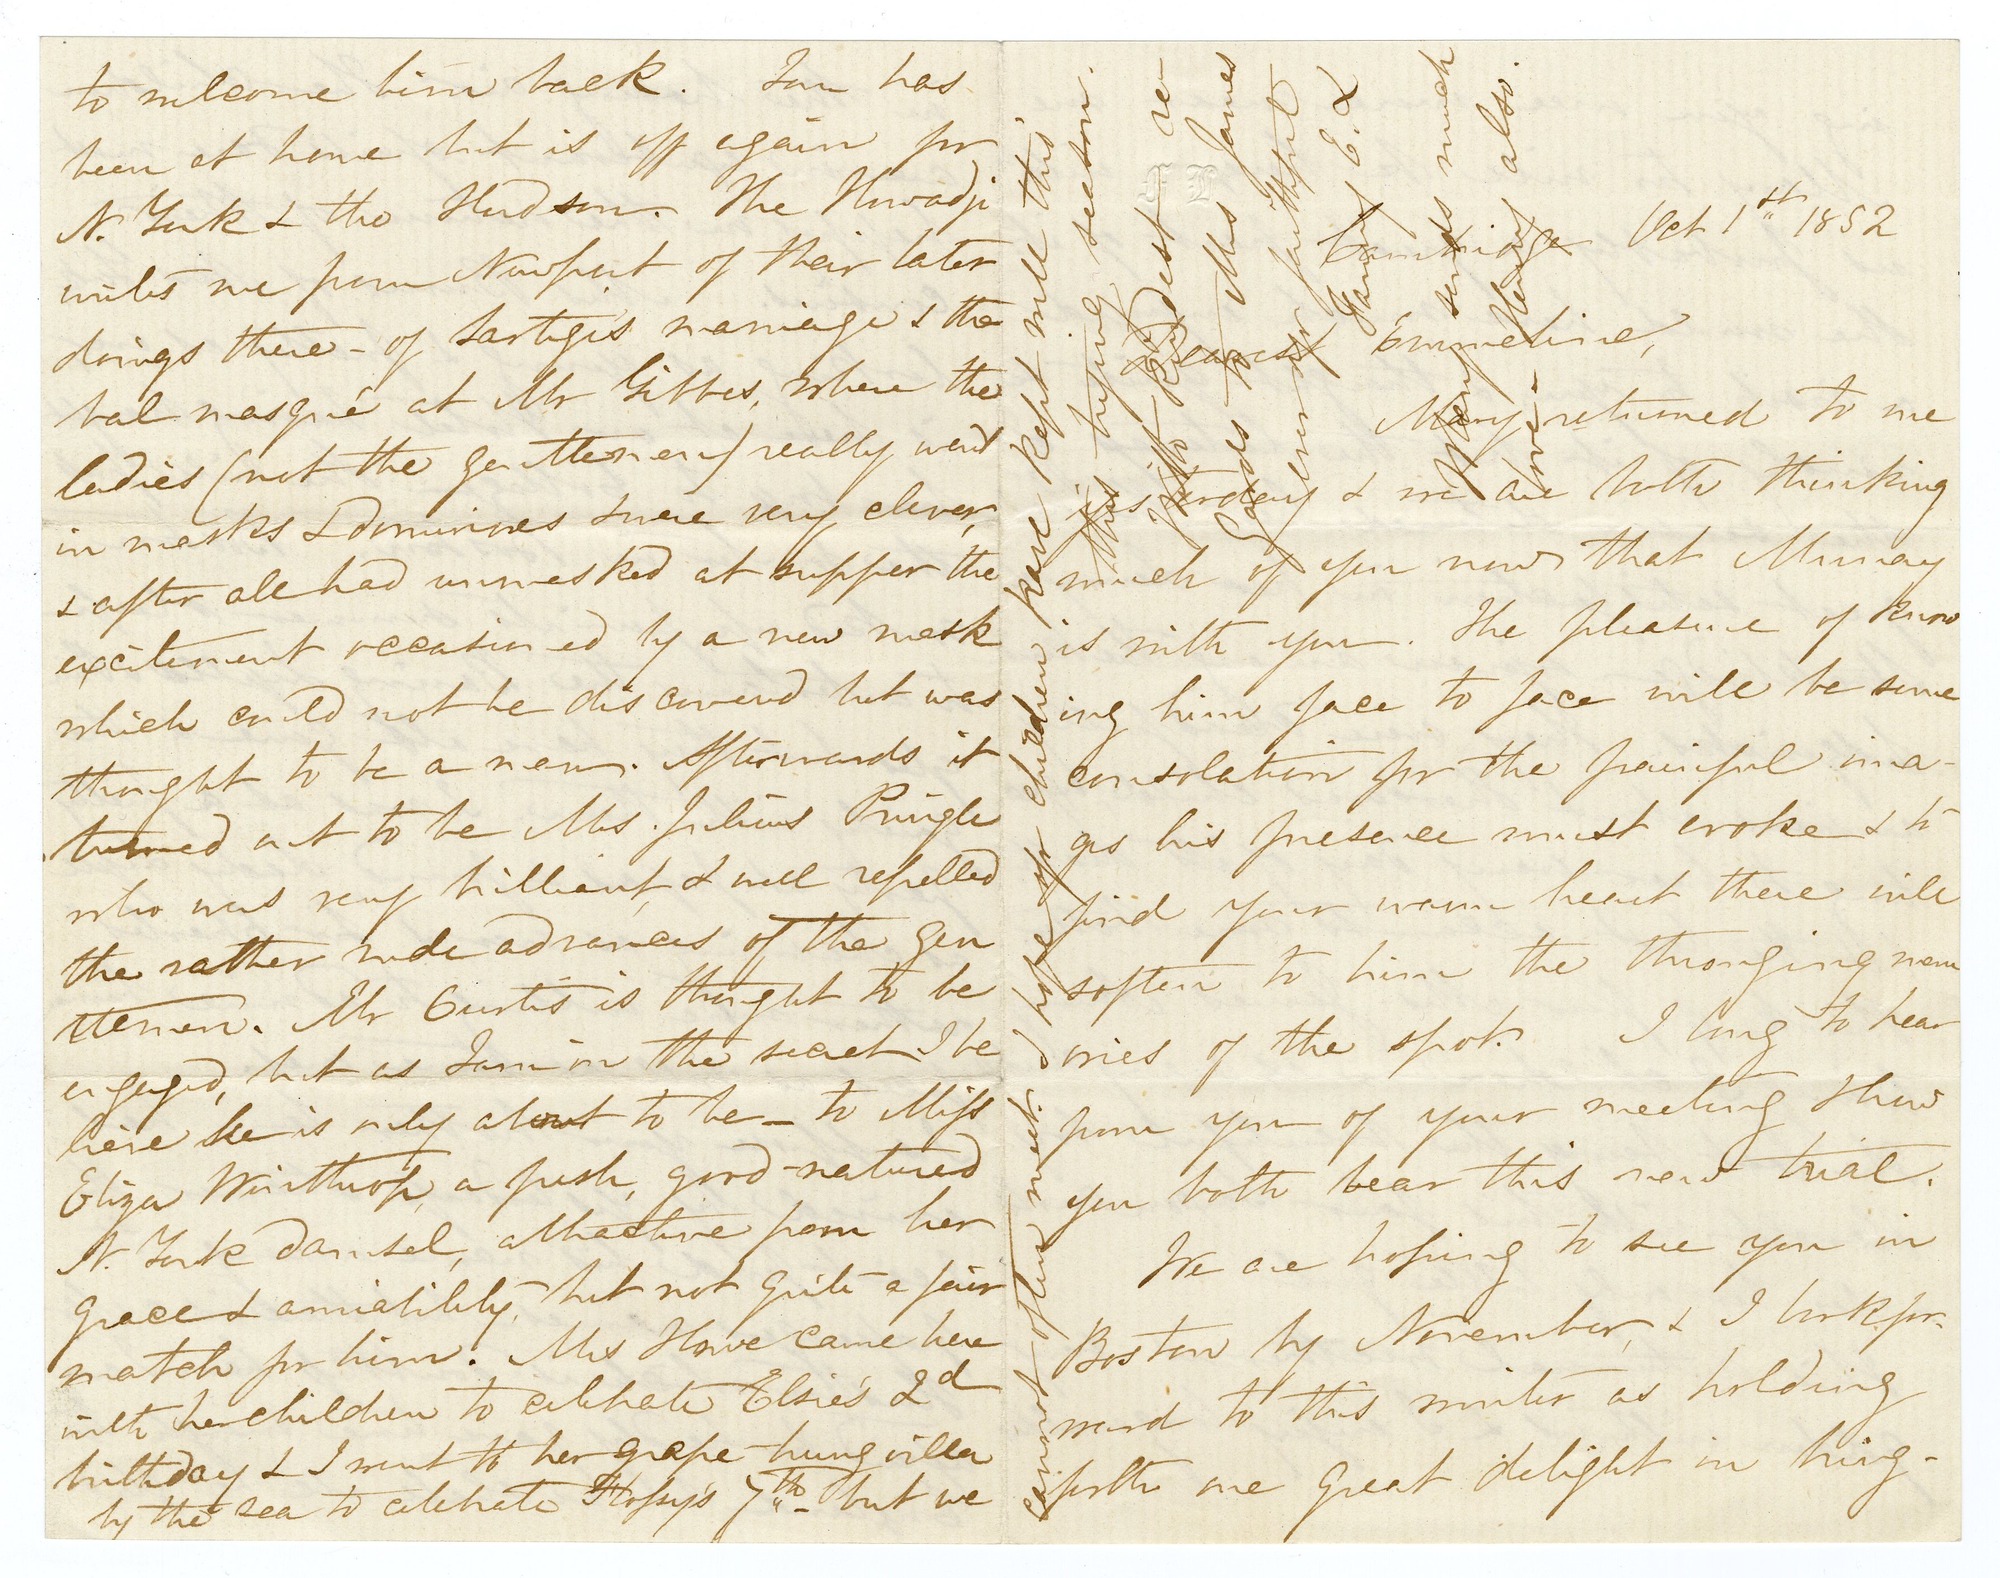 Cambridge Oct 1st 1852
Dearest Emmeline,
Mary returned to me
yesterday & we are both thinking
much of you now that Murray
is with you. The pleasure of know
ing him face to face will be some
consolation for the painful ima-
ges his presence must evoke & to
find your warm heart there will
soften to him the thronging mem
ories of the spot. I long to hear
from you of your meeting & how
you both bear this new trial.
We are hoping to see you in
Boston by November, & I look for-
ward to this winter as holding
forth one great delight in bring-
to welcome him back. Tom has
been at home but is off again for
N. York & the Hudson. The Howadji
writes me from Newport of their later
doings there - of Sartiges marriage & the
bal masqué at Mr Gibbes, where the
ladies (not the gentlemen) really went
in masks & dominoes & were very clever,
& after all had unmasked at supper the
excitement occasioned by a new mask
which could not be discovered but was
thought to be a man. Afterwards it
turned out to be Mrs. Julius Pringle
who was very brilliant, & well repelled
the rather rude advances of the gen
tlemen. Mr Curtis is thought to be
engaged, but as I am in the secret I be
lieve he is only about to be - to Miss
Eliza Winthrop, a fresh, good-natured
N. York damsel, attractive from her
grace & amiability, but not quite a fair
match for him. Mrs Howe came here
with her children to celebrate Elsie's 2d
birthday & I went to her grape-hung villa
by the sea to celebrate Flossy's 7th - but we
cannot often meet. I hope yr children have kept well this
this trying season.
With kindest re
gards to Mrs James
Ever yr faithful
Fanny E. L
Mary sends much
love - Henry also.